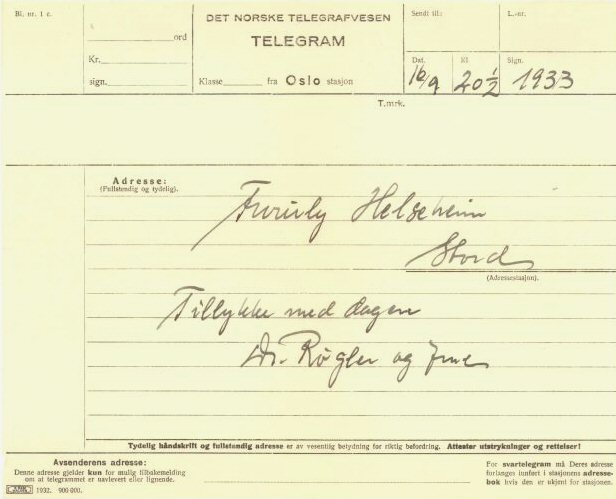 Bl. nr. 1 c.
ord
Kr.
sign.
DET NORSKE TELEGRAFVESEN
TELEGRAM
Klasse fra Oslo stasjon
Sendt til:
L.-nr.
Dat. Kl. Sign.
16/9 20 1/2 1933
T.mrk.
Adresse:
(Fullstendig og tydelig).
Furuly Helseheim
Stord
(Adressestasjon).
Tillykke med dagen
Dr. Røgler og frue
Tydelig håndskrift og fullstendig adresse er av vesentlig betydning for riktig befordring. Attester utstrykninger og rettelser!
Avsenderens adresse:
Denne adresse gjelder kun for mulig tilbakemelding
om at telegrammet er uavlevert eller lignende.
1932. 900 000.
For svartelegram må Deres adresse
forlanges innført i stasjonens adresse-
bok hvis den er ukjent for stasjonen.